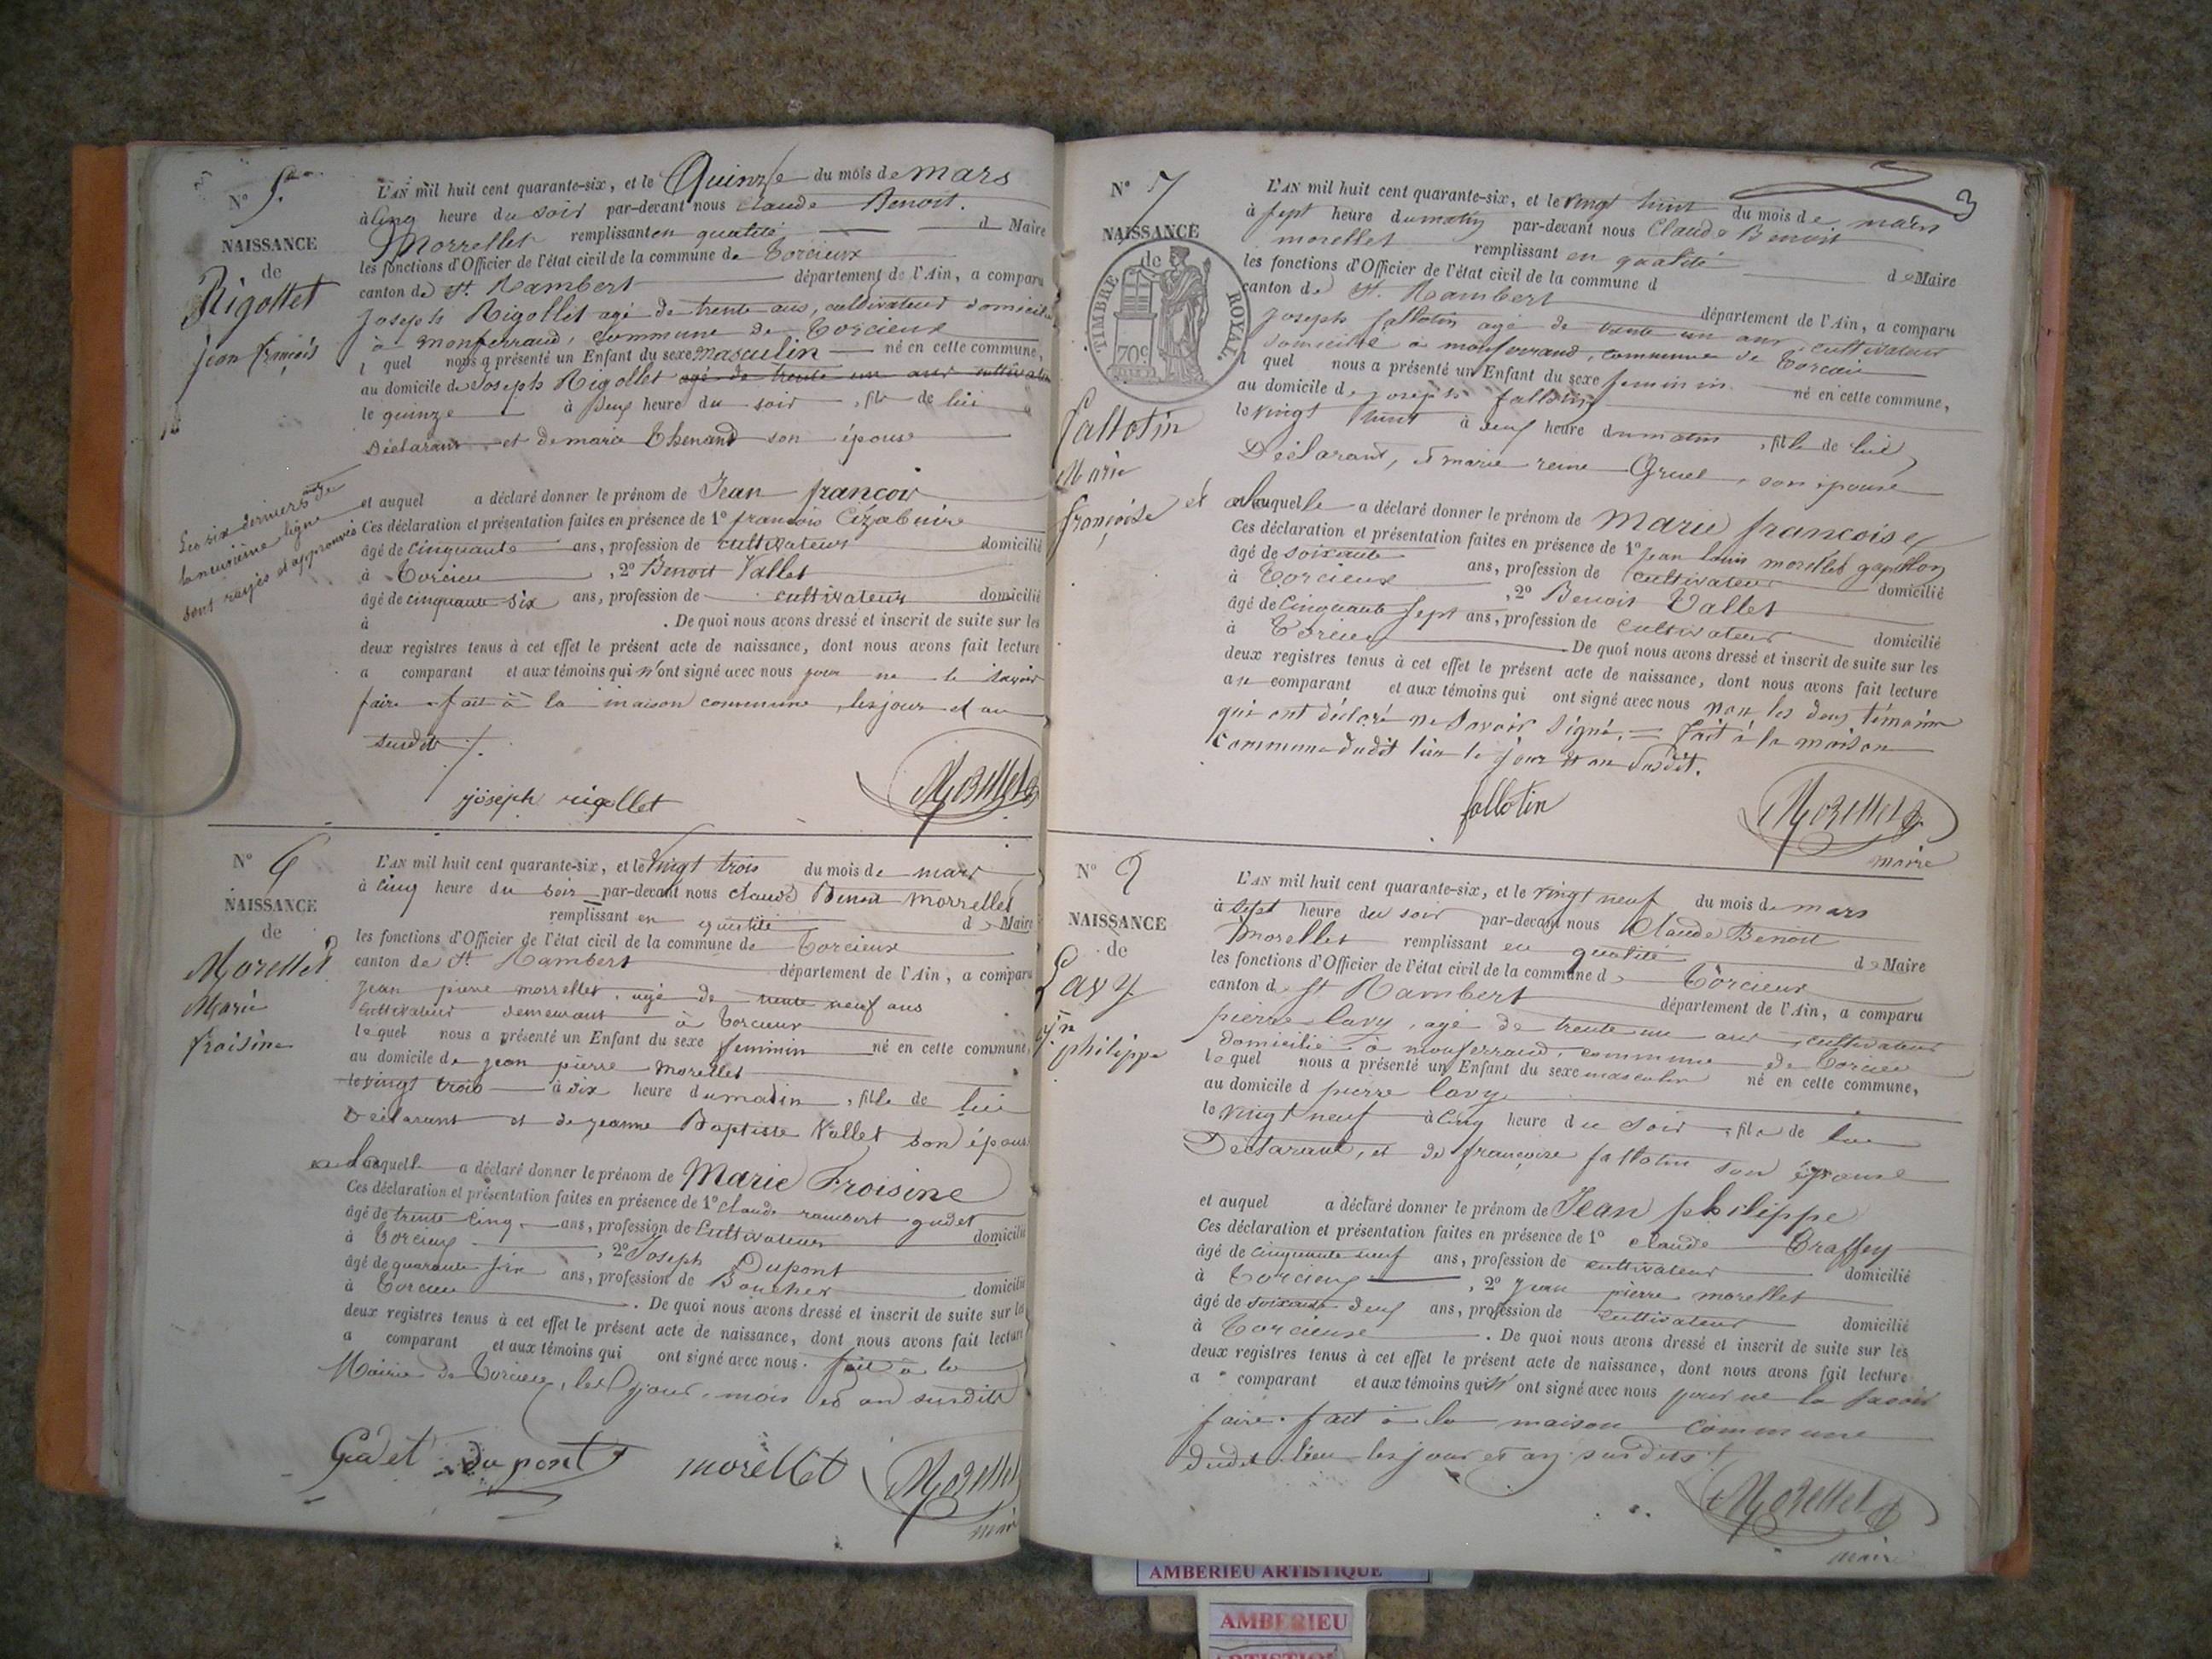 N° 5
NAISSANCE
de
Rigollet
jean françois
Les six derniers mots de
la neuvième ligne
sont rayés et approuvés
L'AN mil huit cent quarante-six, et le Quinze du mois de mars
à cinq heure du soir par-devant nous Claude Benoit
Morrellet remplissant en qualité de Maire
les fonctions d'Officier de l'état civil de la commune de Torcieux
canton de St. Rambert département de l'Ain, a comparu
Joseph Rigollet agé de trente ans, cultivateur domicilié
à Monferrand, commune de Torcieux
l quel nous a présenté un Enfant du sexe masculin né en cette commune,
au domicile de Joseph Rigollet agé de trente un ans cultivateur
le quinze à deux heure du soir, fils de lui
Déclarant et de marie Thenand son épouse
et auquel a déclaré donner le prénom de Jean françois
Ces déclaration et présentation faites en présence de 1° françois
âgé de cinquante ans, profession de cultivateur domicilié
à Torcieu, 2° Benoit Vallet
âgé de cinquante six ans, profession de cultivateur domicilié
à . De quoi nous avons dressé et inscrit de suite sur les
deux registres tenus à cet effet le présent acte de naissance, dont nous avons fait lecture
a comparant et aux témoins qui n'ont signé avec nous pour ne le savoir
faire fait à la maison commune, les jour et an
susdit
joseph rigollet Morellet
N° 6
NAISSANCE
de
Morellet
Marie
froisine
L'AN mil huit cent quarante-six, et le vingt trois du mois de mars
à cinq heure du soir par-devant nous Claude Benoit Morrellet
remplissant en qualité de Maire
les fonctions d'Officier de l'état civil de la commune de Torcieux
canton de St. Rambert département de l'Ain, a comparu
jean pierre morrellet, agé de trente neuf ans
cultivateur demeurant à Torcieux
lequel nous a présenté un Enfant du sexe feminin né en cette commune,
au domicile de jean pierre morellet
le vingt trois à dix heure du matin, fille de lui
Déclarant et de jeanne Baptiste Vallet son épouse
et à laquelle a déclaré donner le prénom de Marie Froisine
Ces déclaration et présentation faites en présence de 1° Claude rambert gudet
âgé de trente cinq ans, profession de Cultivateur domicilié
à Torcieux, 2° Joseph Dupont
âgé de quarante six ans, profession de Boucher domicilié
à Torcieu . De quoi nous avons dressé et inscrit de suite sur les
deux registres tenus à cet effet le présent acte de naissance, dont nous avons fait lecture
a comparant et aux témoins qui ont signé avec nous. fait à la
Mairie de Torcieu, les jour, mois et an susdits
Gudet dupont morellet Morellet
maire
3
N° 7
NAISSANCE
de
TIMBRE ROYAL.
70c
fallotin
Marie
françoise
L'AN mil huit cent quarante-six, et le vingt huit du mois de mars
à sept heure du matin par-devant nous Claude Benoit
morellet remplissant en qualité de Maire
les fonctions d'Officier de l'état civil de la commune d
canton de St. Rambert département de l'Ain, a comparu
joseph fallotin agé de trente un ans, cultivateur
domicilié à monferrand, commune de Torcieu
l quel nous a présenté un Enfant du sexe feminin né en cette commune,
au domicile de joseph fallotin
le vingt huit à deux heure du matin, fille de lui
Déclarant, et marie reine Gruel, son épouse
et à laquelle a déclaré donner le prénom de Marie françoise
Ces déclaration et présentation faites en présence de 1° jean louis morellet
âgé de soixante ans, profession de cultivateur domicilié
à Torcieux, 2° Benoit Vallet
âgé de cinquante sept ans, profession de cultivateur domicilié
à Torcieu . De quoi nous avons dressé et inscrit de suite sur les
deux registres tenus à cet effet le présent acte de naissance, dont nous avons fait lecture
au comparant et aux témoins qui ont signé avec nous non les deux témoins
qui ont déclaré ne savoir signé. = fait à la maison
Commune dudit lieu le jour et an susdit.
fallotin Morellet
maire
N°
NAISSANCE
de
Lavy
jn
philippe
L'AN mil huit cent quarante-six, et le vingt neuf du mois de mars
à sept heure du soir par-devant nous Claude Benoit
morellet remplissant en qualité de Maire
les fonctions d'Officier de l'état civil de la commune de Torcieux
canton de St Rambert département de l'Ain, a comparu
pierre lavy, agé de trente un ans, cultivateur
domicilié à monferrand, commune de Torcieu
lequel nous a présenté un Enfant du sexe masculin né en cette commune,
au domicile d pierre lavy
le vingt neuf à cinq heure du soir, fils de lui
Déclarant, et de françoise fallotin son épouse
et auquel a déclaré donner le prénom de Jean philippe
Ces déclaration et présentation faites en présence de 1° claude Traffey
âgé de cinquante neuf ans, profession de cultivateur domicilié
à Torcieux, 2° Jean pierre morellet
âgé de soixante deux ans, profession de cultivateur domicilié
à Torcieux . De quoi nous avons dressé et inscrit de suite sur les
deux registres tenus à cet effet le présent acte de naissance, dont nous avons fait lecture
a comparant et aux témoins qui n'ont signé avec nous pour ne le savoir
faire. fait à la maison commune
dudit lieu les jour et an susdits
Morellet
maire
AMBERIEU ARTISTIQUE
AMBERIEU
ARTISTIQUE